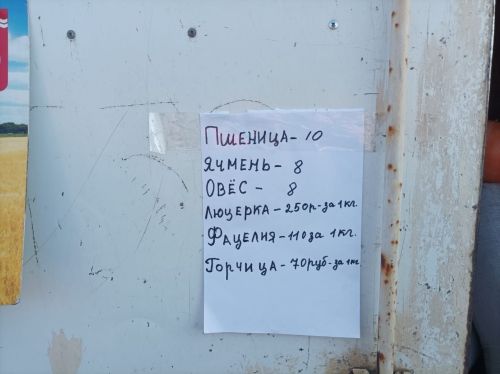 Пшеница - 10
Ячмень - 8
Овёс - 8
Люцерка - 250р - за 1 кг.
Фацелия - 110 за 1 кг.
Горчица - 70 руб - за 1 кг.